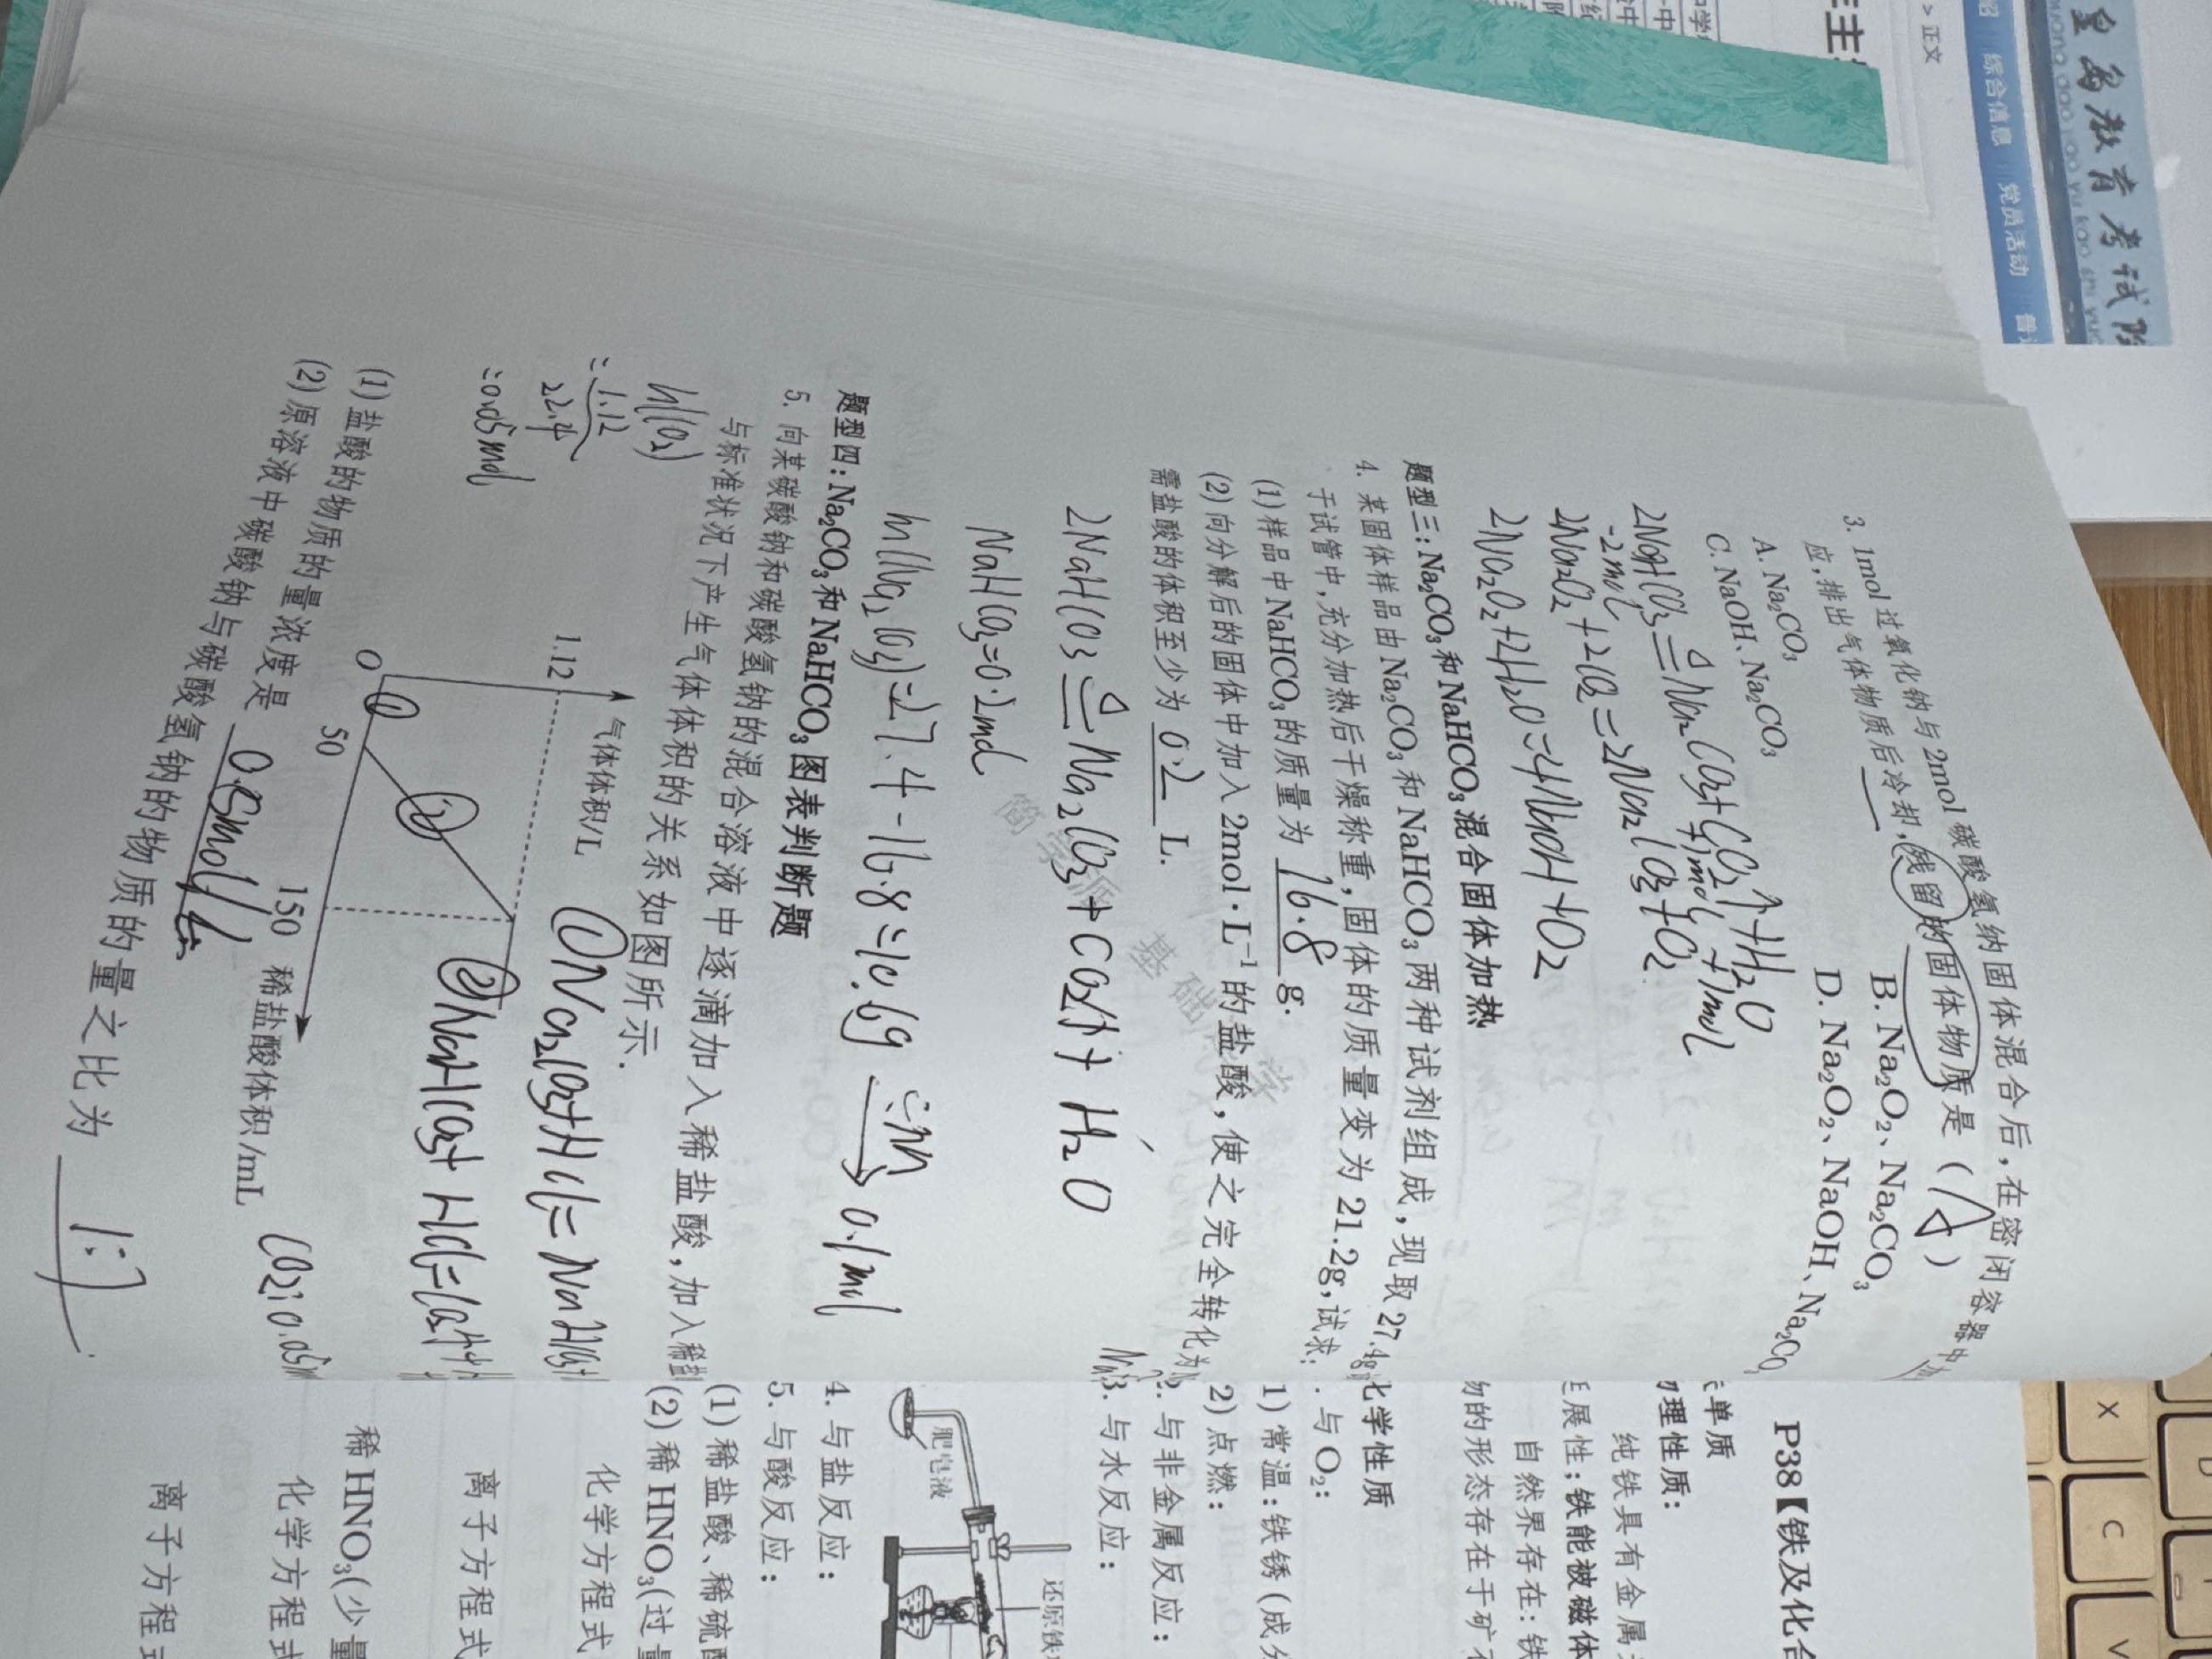 3. 1mol过氧化钠与2mol碳酸氢钠固体混合后,在密闭容器中
应,排出气体物质后冷却,残留的固体物质是( A )
A. Na₂CO₃
B. Na₂O₂、Na₂CO₃
C. NaOH、Na₂CO₃
D. Na₂O₂、NaOH、Na₂CO₃
2NaHCO₃ =△= Na₂CO₃+CO₂↑+H₂O
-2mol +1mol +1mol
2Na₂O₂+2CO₂=2Na₂CO₃+O₂
2Na₂O₂+2H₂O=4NaOH+O₂
题型三:Na₂CO₃和NaHCO₃混合固体加热
4. 某固体样品由Na₂CO₃和NaHCO₃两种试剂组成,现取27.4g
于试管中,充分加热后干燥称重,固体的质量变为21.2g,试求:
(1)样品中NaHCO₃的质量为 16.8 g.
(2)向分解后的固体中加入2mol·L⁻¹的盐酸,使之完全转化为
需盐酸的体积至少为 0.2 L.
2NaHCO₃ =△= Na₂CO₃+CO₂↑+H₂O
NaHCO₃=0.2mol
m(Na₂CO₃)=27.4-16.8=10.6g
0.1mol
题型四:Na₂CO₃和NaHCO₃图表判断题
5. 向某碳酸钠和碳酸氢钠的混合溶液中逐滴加入稀盐酸,加入稀盐
与标准状况下产生气体体积的关系如图所示.
n(CO₂)
=1.12/22.4
=0.05mol
气体体积/L
1.12
O
50
150
稀盐酸体积/mL
①
②
①Na₂CO₃+HCl=NaHCO₃+
②NaHCO₃+HCl=CO₂↑+
CO₂:0.05m
(1)盐酸的物质的量浓度是 0.5mol/L
(2)原溶液中碳酸钠与碳酸氢钠的物质的量之比为 1:1.
简学派
基础
学
P38【铁及化合
单质
物理性质:
纯铁具有金属
延展性;铁能被磁体
自然界存在:铁
物的形态存在于矿石
化学性质
. 与O₂:
1)常温:铁锈(成分
2)点燃:
. 与非金属反应:
3. 与水反应:
肥皂液
还原铁
4. 与盐反应:
5. 与酸反应:
(1)稀盐酸、稀硫酸
(2)稀HNO₃(过量
化学方程式
离子方程式
稀HNO₃(少量
化学方程式
离子方程式
皇岛教育考试院
综合信息
党员活动
> 正文
X
C
V
D